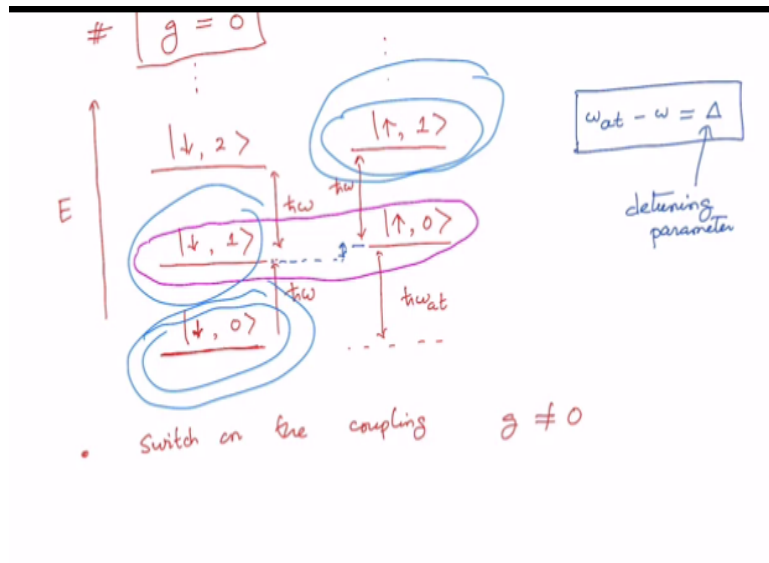 # g = 0
|↓, 2>
|↑, 1>
ω_at - ω = Δ
detuning
parameter
E
ħω
ħω
|↓, 1>
|↑, 0>
ħω
ħω_at
|↓, 0>
• Switch on the coupling g ≠ 0